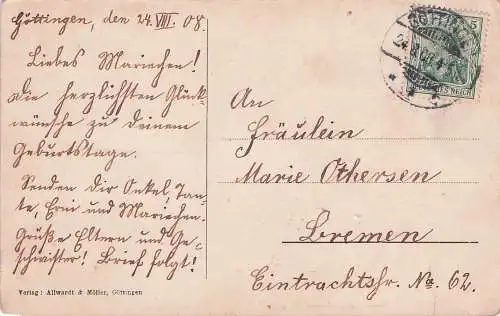 Göttingen, den 24. VIII. 08.
Liebes Mariechen!
Die herzlichsten Glück-
wünsche zu Deinem
Geburtstage.
Senden Dir Onkel, Tan-
te, Erni und Mariechen.
Grüße Eltern und Ge-
schwister! Brief folgt!
Verlag: Allwardt & Müller, Göttingen
5
GÖTTINGEN
An
Fräulein
Marie Othersen
Bremen
Eintrachtstr. No. 62.